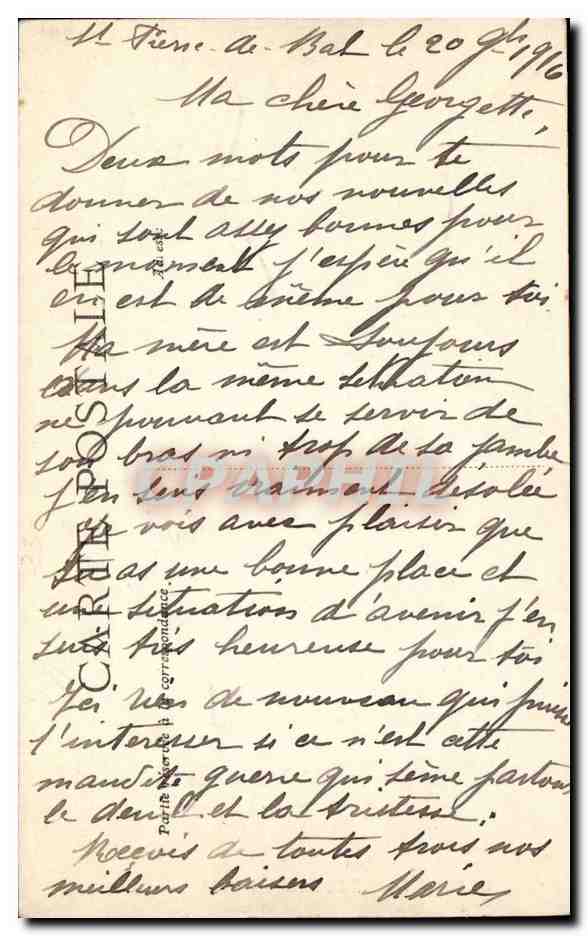 St Pierre-de-Bat le 20 9bre 1916
Ma chère Georgette,
Deux mots pour te
donner de nos nouvelles
qui sont assez bonnes pour
le moment j'espère qu'il
en est de même pour toi
Ma mère est toujours
dans la même situation
ne pouvant se servir de
son bras ni trop de sa jambe
j'en suis vraiment désolée
Je vois avec plaisir que
tu as une bonne place et
une situation d'avenir j'en
suis très heureuse pour toi
Ici rien de nouveau qui puisse
t'interesser si ce n'est cette
maudite guerre qui sème partout
le deuil et la tristesse.
Reçois de toutes trois nos
meilleurs baisers Marie
CARTE POSTALE
Partie réservée à la correspondance.
Adresse
CPAPHIL